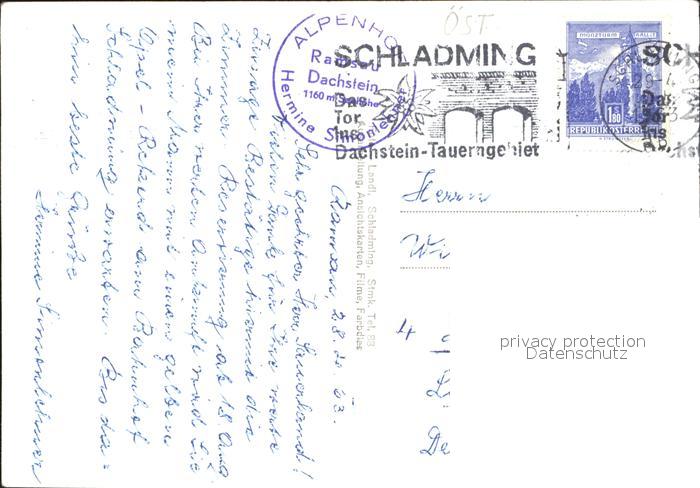 ÖST.
ALPENHOF
Ramsau
Dachstein
1160 m
Hermine Simonlehner
SCHLADMING
Das
Tor
ins
Dachstein-Tauerngebiet
MÜNZTURM HALL I.T.
1.80
REPUBLIK ÖSTERREICH
SCH
Das
Tor
ins
Landl, Schladming, Stmk. Tel. 83
Ansichtskarten, Filme, Farbdias
Ramsau, 28. 63.
Sehr geehrter Herr Sauerland!
Vielen Dank für Ihre werte
Zusage. Bestätige hiermit die
Zimmer Reservierung ab 18. Aug.
Bei Ihrer werten Ankunft wird Sie
mein Mann mit einem gelben
Opel - Rekord am Bahnhof
Schladming erwarten. Bis da-
hin beste Grüße
Hermine Simonlehner
Herrn
Wi
4
De
privacy protection
Datenschutz